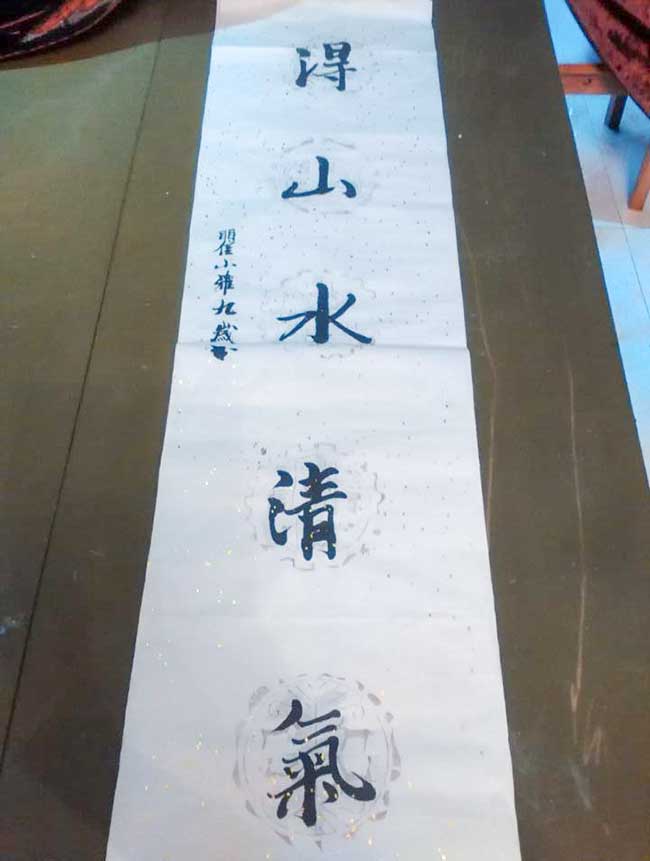 得山水清氣
小雅九歲書